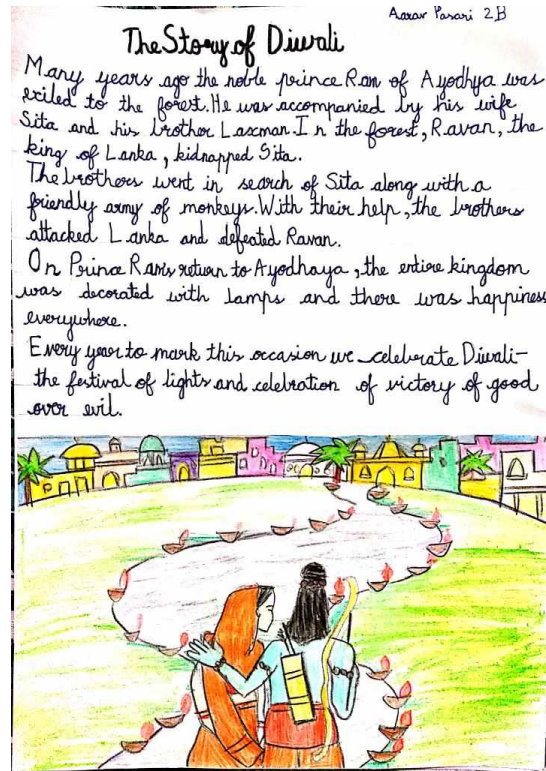 Aarav Pasari 2B
The Story of Diwali
Many years ago the noble prince Ram of Ayodhya was
exiled to the forest. He was accompanied by his wife
Sita and his brother Laxman. In the forest, Ravan, the
king of Lanka, kidnapped Sita.
The brothers went in search of Sita along with a
friendly army of monkeys. With their help, the brothers
attacked Lanka and defeated Ravan.
On Prince Ram's return to Ayodhaya, the entire kingdom
was decorated with lamps and there was happiness
everywhere.
Every year to mark this occasion we celebrate Diwali-
the festival of lights and celebration of victory of good
over evil.